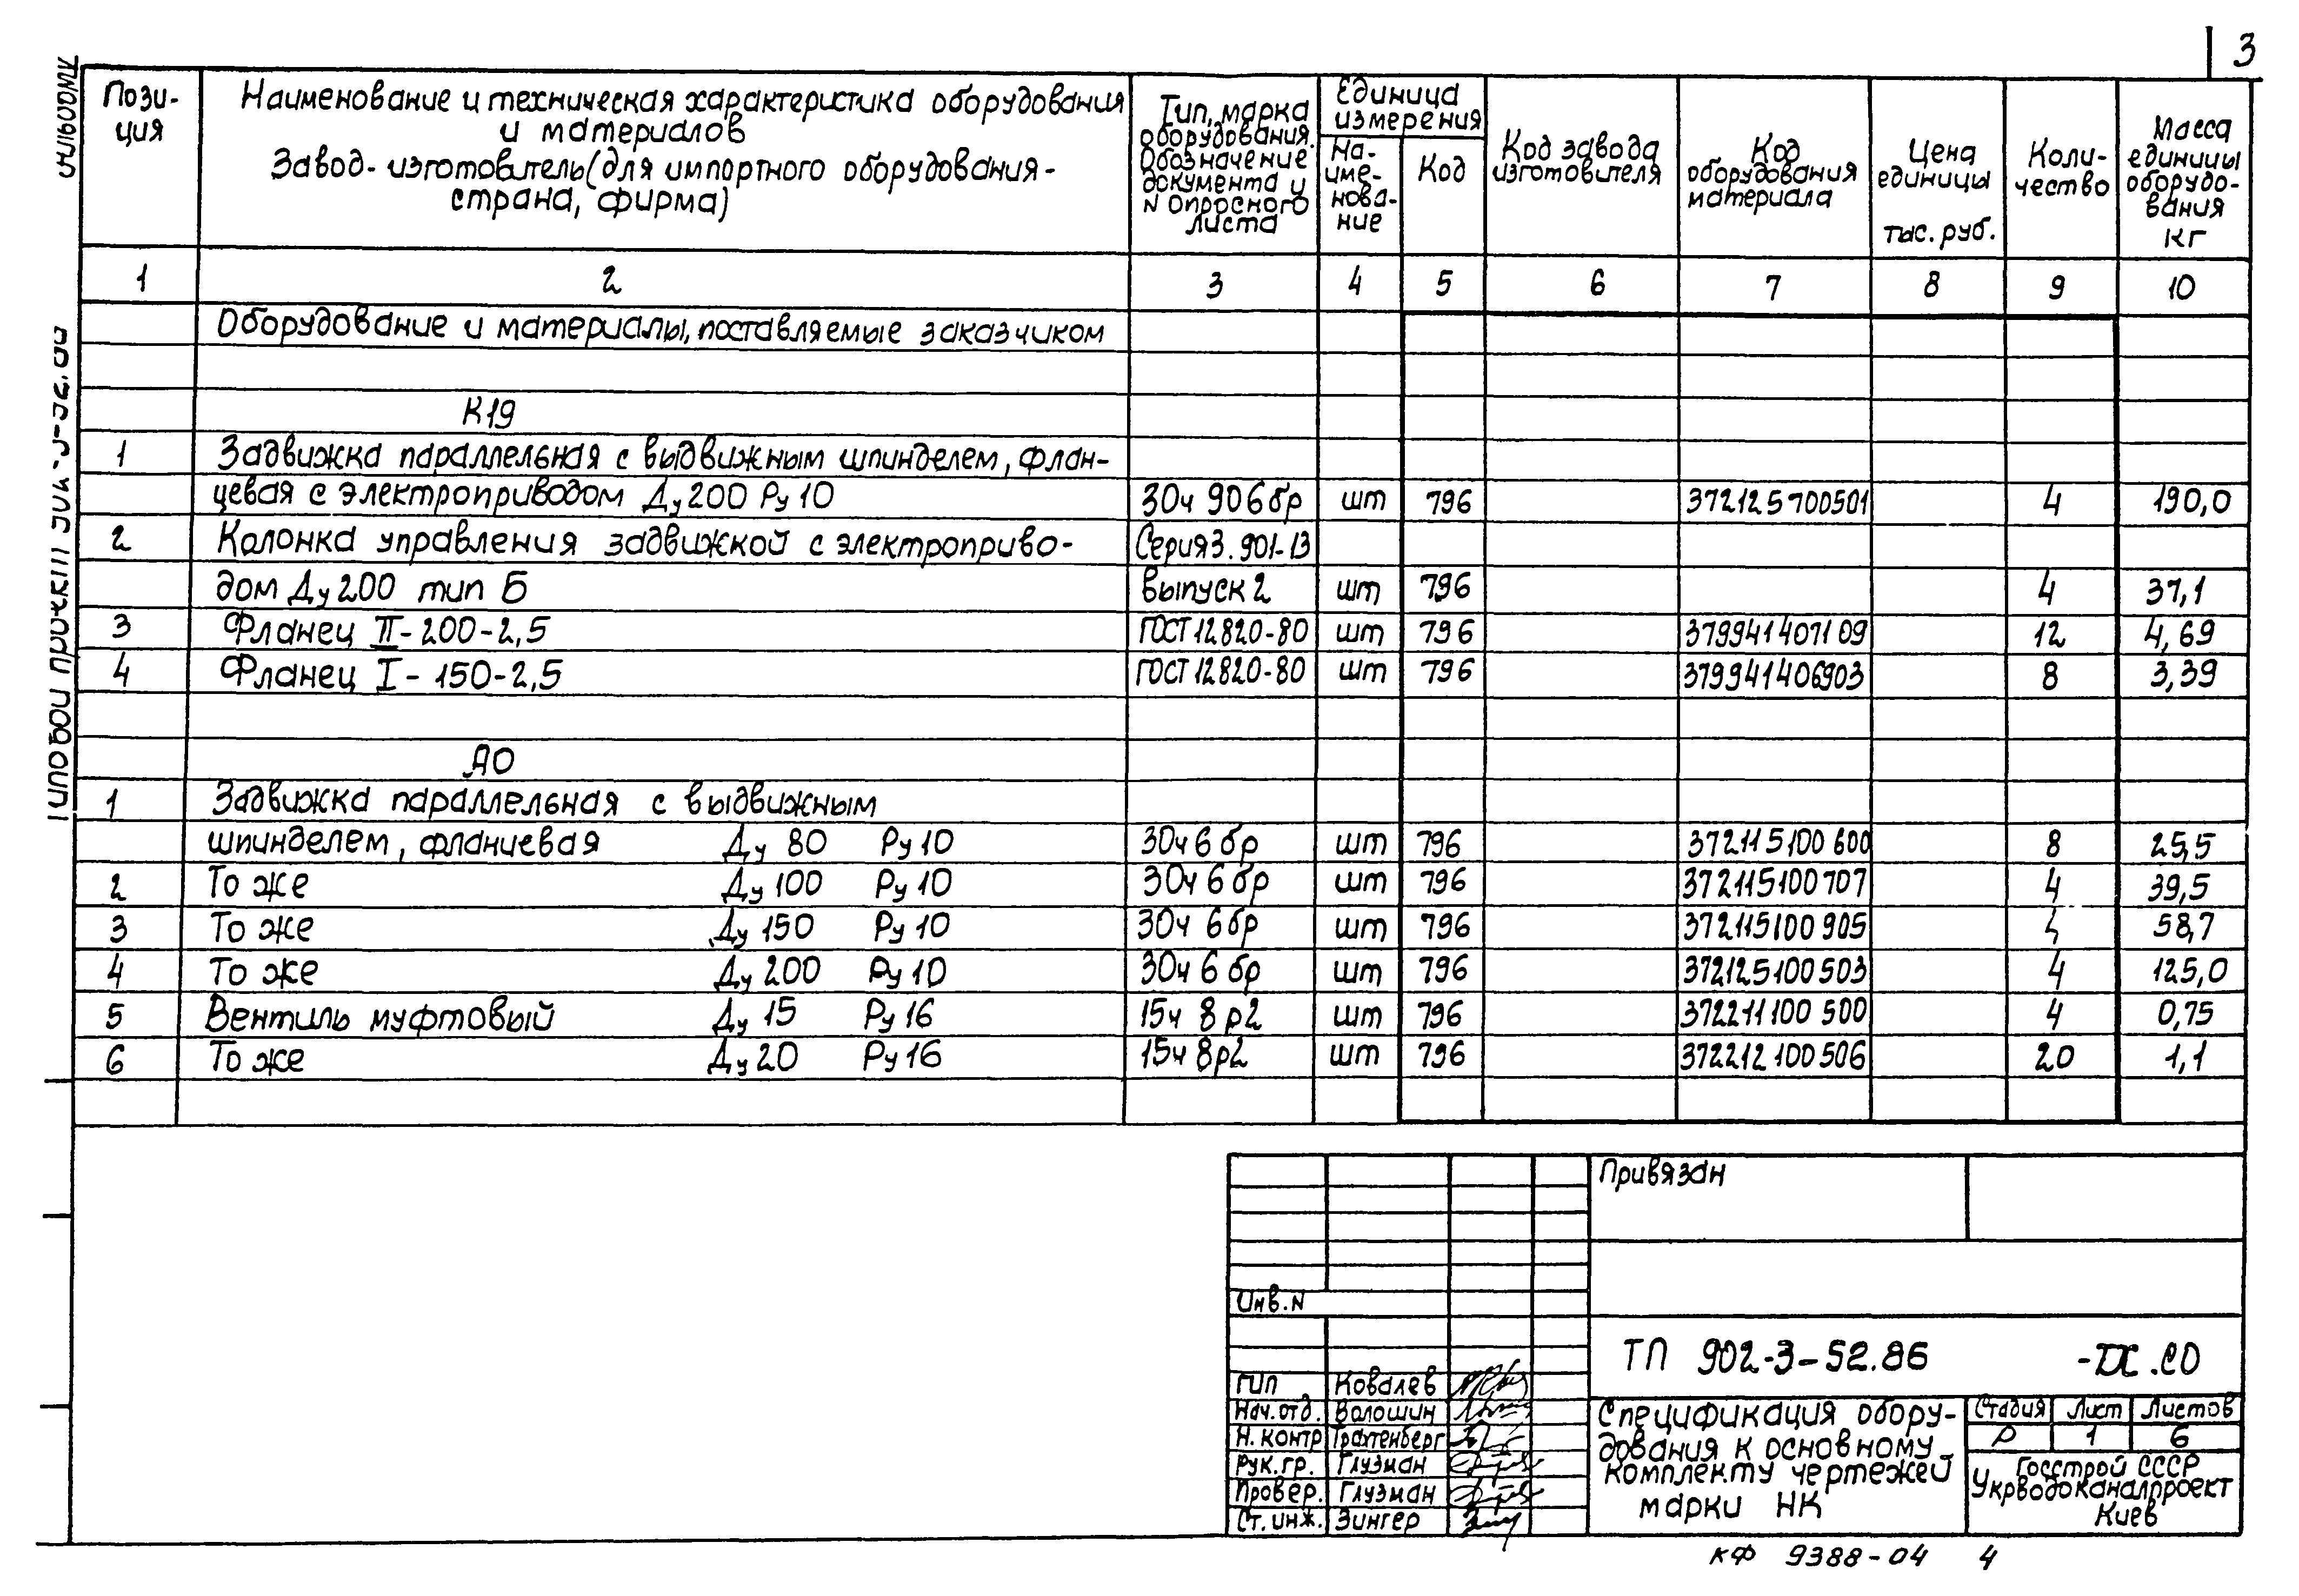 3
Пози-
ция
Наименование и техническая характеристика оборудования
и материалов
Завод-изготовитель (для импортного оборудования-
страна, фирма)
Тип, марка
оборудования.
Обозначение
документа и
N опросного
листа
Единица
измерения
На-
име-
нова-
ние
Код
Код завода
изготовителя
Код
оборудования
материала
Цена
единицы
тыс. руб.
Коли-
чество
Масса
единицы
оборудо-
вания
кг
1 2 3 4 5 6 7 8 9 10
Оборудование и материалы, поставляемые заказчиком
К19
1 Задвижка параллельная с выдвижным шпинделем, флан-
цевая с электроприводом Ду 200 Ру 10 30ч 906 бр шт 796 372125700501 4 190,0
2 Колонка управления задвижкой с электроприво- Серия 3.901-13
дом Ду 200 тип Б выпуск 2 шт 796 4 37,1
3 Фланец II-200-2,5 ГОСТ 12820-80 шт 796 379941407109 12 4,69
4 Фланец I-150-2,5 ГОСТ 12820-80 шт 796 379941406903 8 3,39
А0
1 Задвижка параллельная с выдвижным
шпинделем, фланцевая Ду 80 Ру 10 30ч 6 бр шт 796 372115100600 8 25,5
2 То же Ду 100 Ру 10 30ч 6 бр шт 796 372115100707 4 39,5
3 То же Ду 150 Ру 10 30ч 6 бр шт 796 372115100905 4 58,7
4 То же Ду 200 Ру 10 30ч 6 бр шт 796 372125100503 4 125,0
5 Вентиль муфтовый Ду 15 Ру 16 15ч 8 р2 шт 796 372211100500 4 0,75
6 То же Ду 20 Ру 16 15ч 8 р2 шт 796 372212100506 20 1,1
Привязан
Инв. N
ТП 902-3-52.86 -ТХ.СО
ГИП Ковалев
Нач. отд. Волошин
Н. контр Трахтенберг
Рук. гр. Глузман
Провер. Глузман
Ст. инж. Зингер
Спецификация обору-
дования к основному
комплекту чертежей
марки НК
Стадия Лист Листов
Р 1 6
Госстрой СССР
Укрводоканалпроект
Киев
КФ 9388-04 4